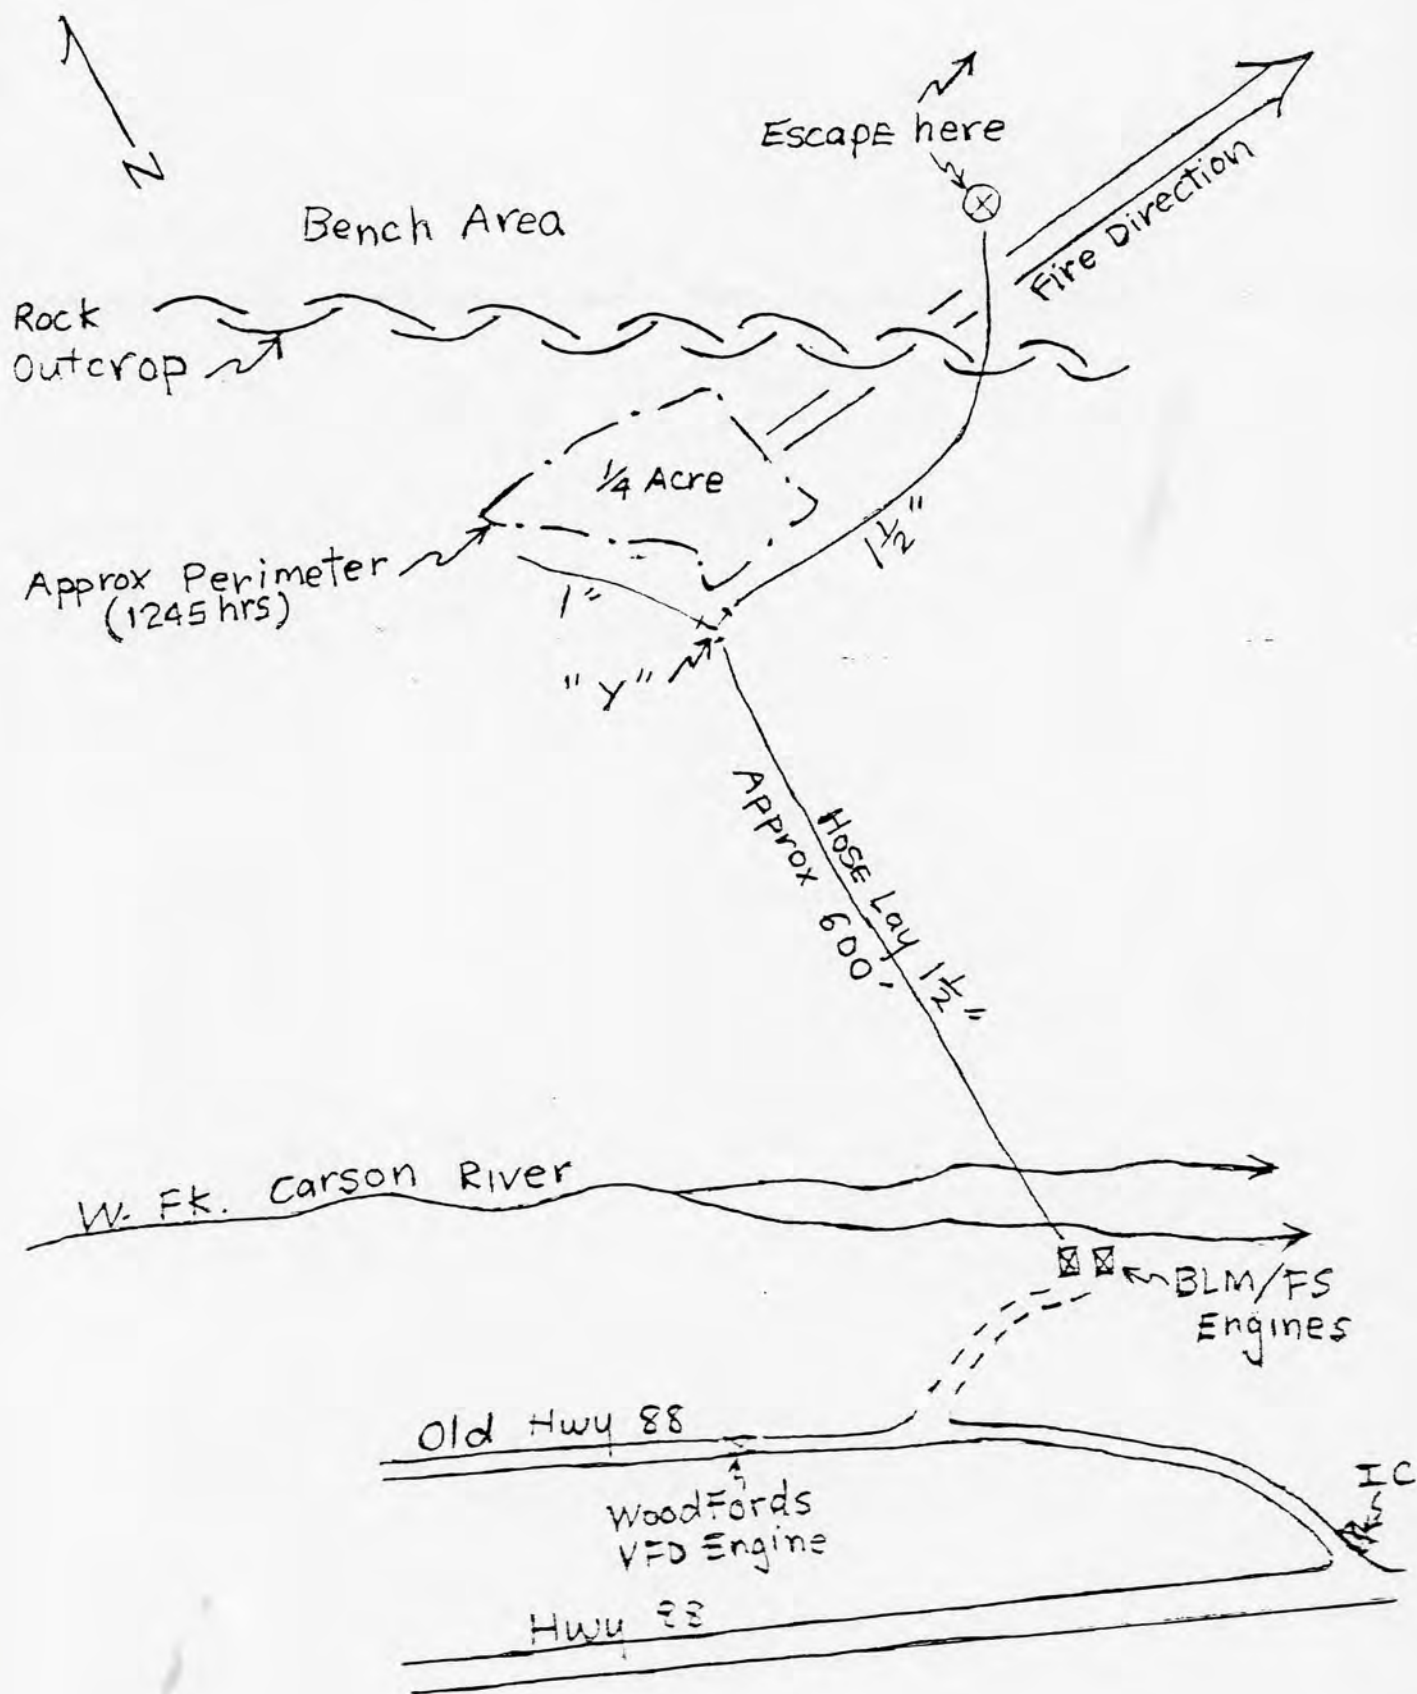 N
Escape here
Fire Direction
Bench Area
Rock
Outcrop
1/4 Acre
1 1/2"
Approx Perimeter
(1245 hrs)
1"
"Y"
Hose Lay 1 1/2"
Approx 600'
W. Fk. Carson River
BLM/FS
Engines
Old Hwy 88
IC
Woodfords
VFD Engine
Hwy 88